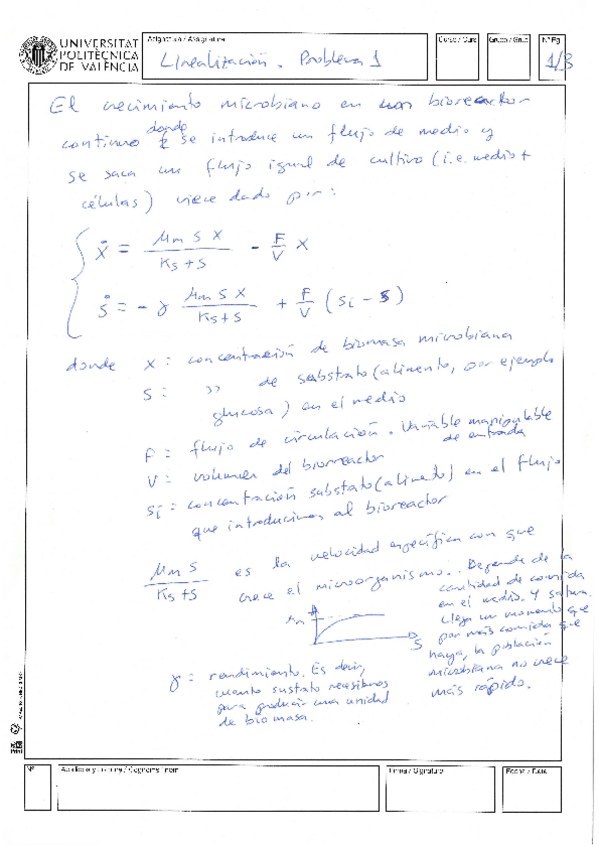 UNIVERSITAT
POLITÈCNICA
DE VALÈNCIA
Asignatura / Assignatura
Linealización. Problema 1
Curso / Curs
Grupo / Grup
Nº Pg.
1/3
El crecimiento microbiano en un bioreactor
continuo donde se introduce un flujo de medio y
se saca un flujo igual de cultivo (i.e. medio +
células) viene dado por:
ẋ = μm S X / (Ks + S) - F/V X
ṡ = - γ μm S X / (Ks + S) + F/V (Si - S)
donde X: concentración de biomasa microbiana
S: " de substato (alimento, por ejemplo
glucosa) en el medio
F = flujo de circulación. Variable manipulable
de entrada
V = volumen del biorreactor
Si = concentración substato (alimento) en el flujo
que introducimos al bioreactor
μm S / (Ks + S) es la velocidad específica con que
crece el microorganismo. Depende de la
cantidad de comida
en el medio. Y satura.
Llega un momento que
por más comida que
haya, la población
microbiana no crece
más rápido.
μm
S
γ = rendimiento. Es decir,
cuanto sustato necesitamos
para producir una unidad
de biomasa.
Nº
Apellidos y nombre / Cognoms i nom
Firma / Signatura
Fecha / Data